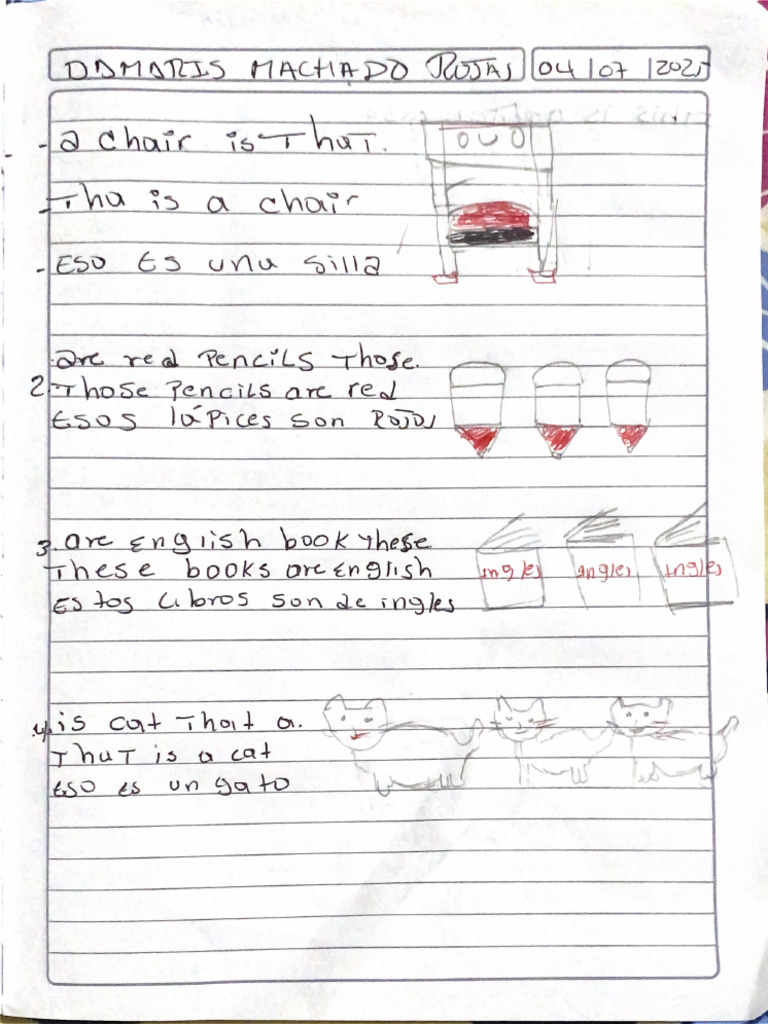 DAMARIS MACHADO ROJAS 04/07/2025
- a chair is That.
- Tha is a chair
- Eso Es una silla
are red Pencils Those.
2. Those Pencils are red
Esos lápices son Rojos
3. are English book these
These books are English
Estos Libros son de ingles
ingles ingles ingles
4. is cat That a.
That is a cat
Eso es un gato